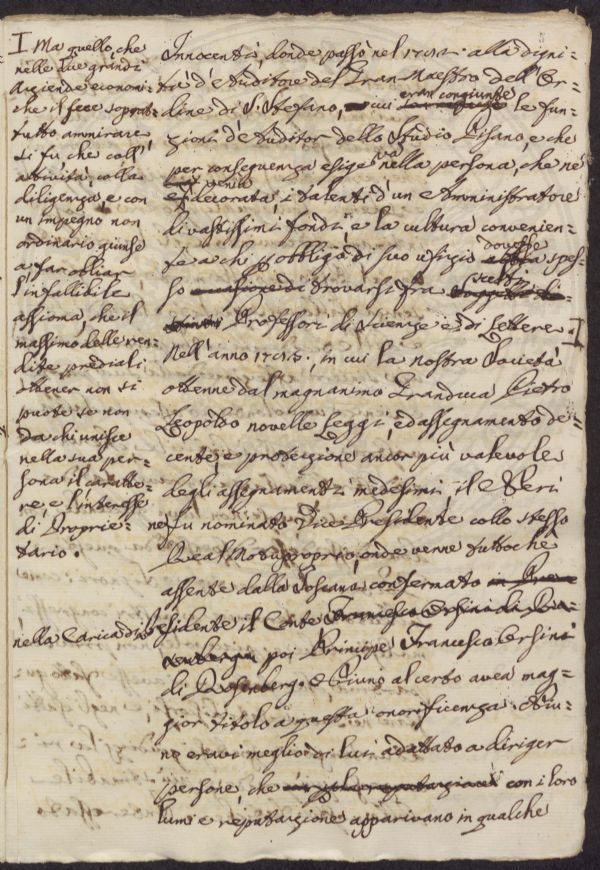 I Ma quello, che
nelle due grandi
Aziende economi=
che il fece soprat=
tutto ammirare
si fu, che coll'
attività, colla
diligenza, e con
un impegno non
ordinario giunse
a far obliar
l'infallibile
assioma, che il
massimo delle ren=
dite prediali
ottener non si
puote se non
da chi unisce
nella sua per=
sona il caratte=
re e l'interesse
di Proprie=
tario.
nella Carica di
5
Innocenti, donde passò nel alla digni=
tà d'Auditore del Gran Maestro dell'Or=
dine di S. Stefano, cui eran congiunte le fun=
zioni d'Auditor dello Studio Pisano, e che
per conseguenza esigeva nella persona, che ne
venia decorata, i talenti d'un Amministratore
di vastissimi fondi, e la cultura convenien=
te a chi obbligo di suo ufizio dovesse spes=
so di trovarsi fra scelti
Professori di Scienze e di Lettere. I
Nell'anno in cui la nostra Società
ottenne dal magnanimo Granduca Pietro
Leopoldo novelle Leggi, ed assegnamento de=
cente, e protezione ancor più valevole
degli assegnamenti medesimi, il Neri
ne fu nominato Vice Presidente collo stesso
Real Motuproprio, onde venne tuttochè
assente dalla Toscana confermato
Presidente il Conte Francesco Orsini di Ro=
senberga poi Principe Francesco Orsini
di Rosenberg. Niuno al certo avea mag=
gior titolo a questa onorificenza. Niu=
no eravi meglio di lui adattato a diriger
persone, che con i loro
lumi e reputazione apparivano in qualche